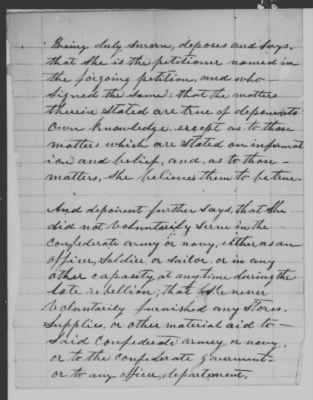 Being duly sworn, deposes and says,
that she is the petitioner named in
the forgoing petition, and who
signed the same; that the matters
therein stated are true of deponents
own knowledge except as to those
matters which are stated on informat
ion and belief, and, as to those
matters, she believes them to be true.
And deponent further says, that she
did not voluntarily serve in the
confederate army or navy, either as an
officer, soldier, or sailor, or in any
other capacity at any time during the
late rebellion; that she never
voluntarily furnished any stores,
supplies, or other material aid to
said Confederate army or navy,
or to the confederate government
or to any officer, department,